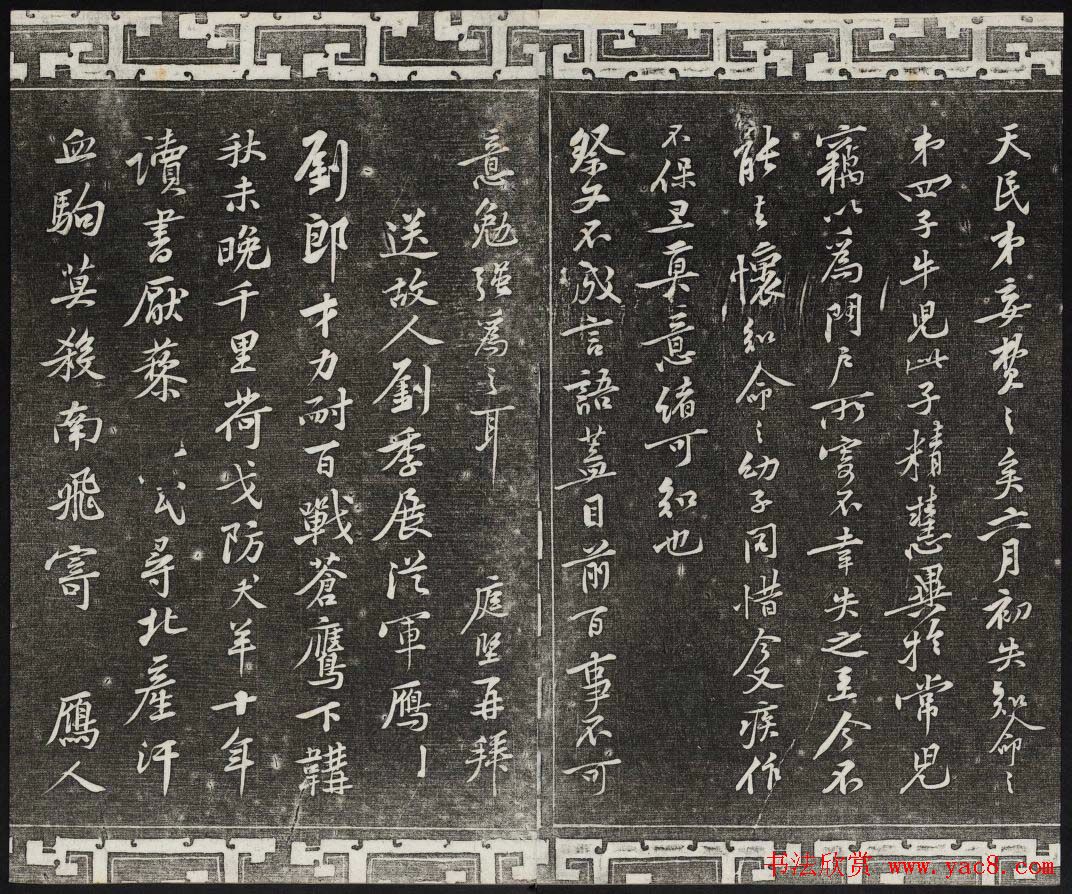 天民弟矣六月初失知命〻
弟四子牛兒此子精慧異於常兒
竊以為門戶所寄不幸失之至今不
能去懷知命〻幼子同惜今又疾作
不保丑真意緒可知也
祭文不成言語蓋目前百事不可
意勉強為之耳 庭堅再拜
送故人劉季展從軍鴈
劉郎才力耐百戰蒼鷹下韝
秋未晚千里荷戈防犬羊十年
讀書厭藜尋北產汗
血駒莫殺南飛寄 鴈人
书法欣赏 www.yac8.com